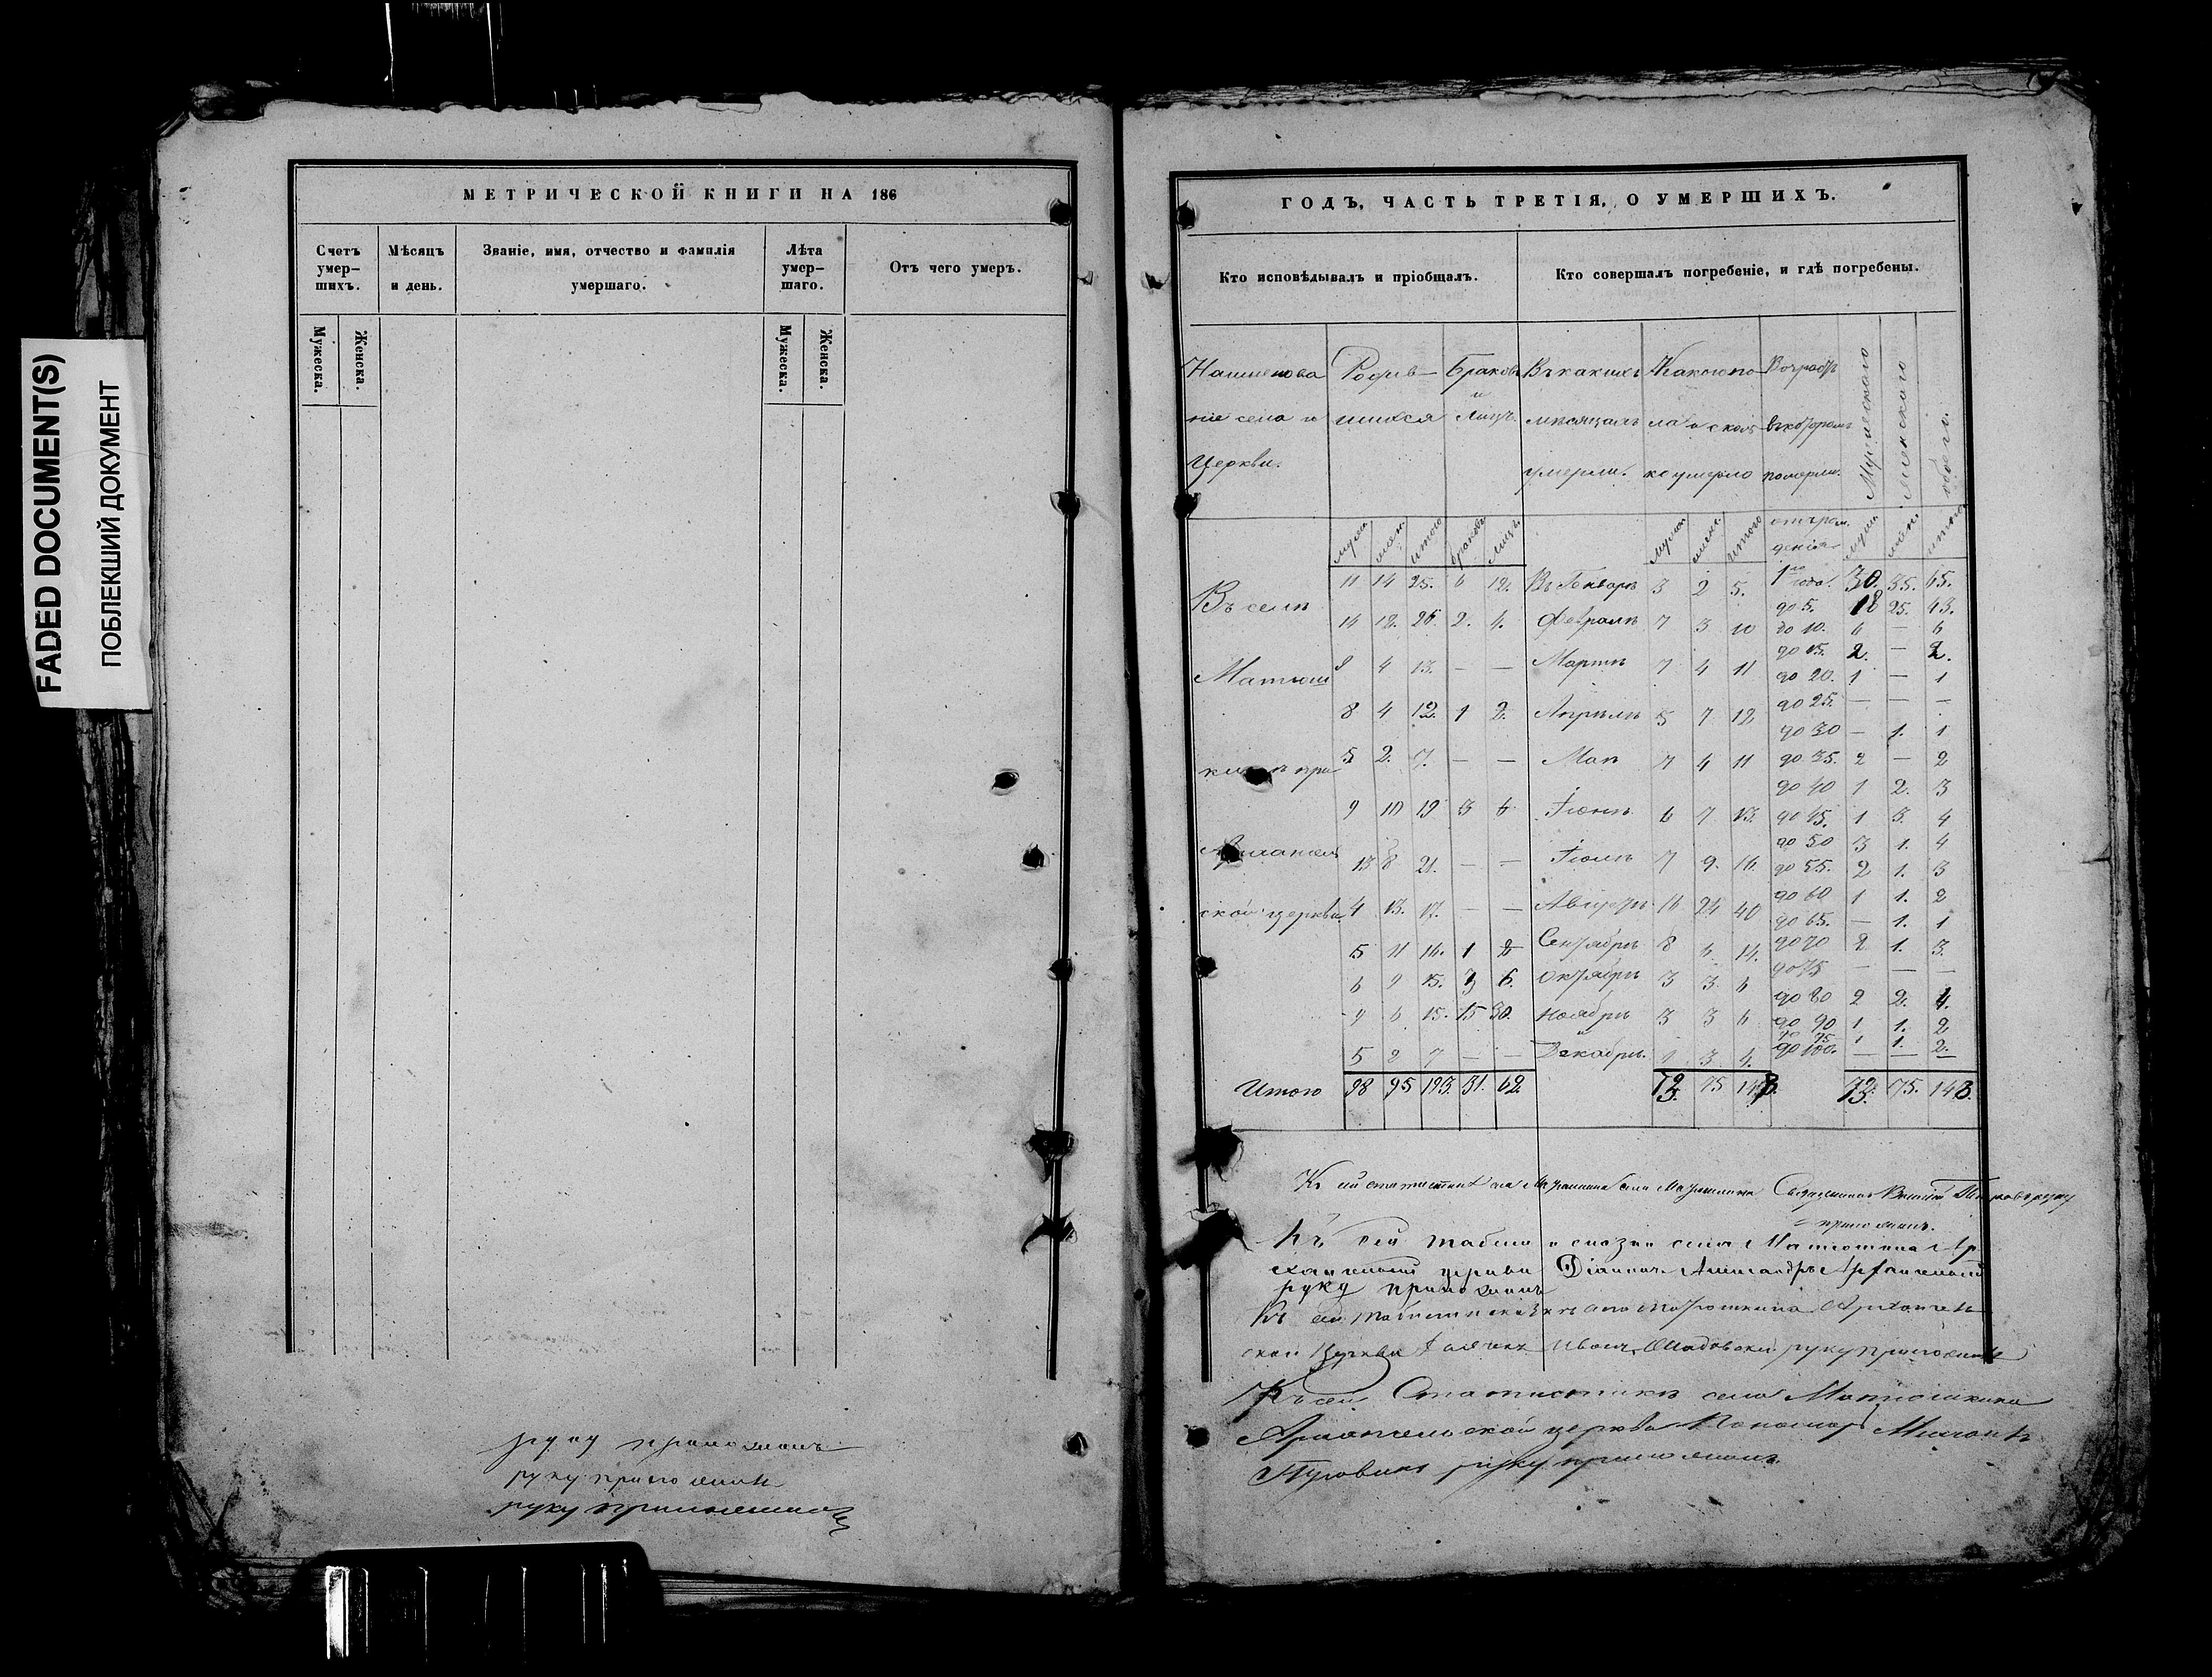 FADED DOCUMENT(S)
ПОБЛЕКШИЙ ДОКУМЕНТ
МЕТРИЧЕСКОЙ КНИГИ НА 186
Счетъ умер-шихъ.
Мѣсяцъ и день.
Званіе, имя, отчество и фамилія умершаго.
Лѣта умер-шаго.
Отъ чего умеръ.
Мужеска.
Женска.
Мужеска.
Женска.
руку приложилъ
руку приложилъ
руку приложилъ
ГОДЪ, ЧАСТЬ ТРЕТІЯ, О УМЕРШИХЪ.
Кто исповѣдывалъ и пріобщалъ.
Кто совершалъ погребеніе, и гдѣ погребены.
Наименова Родив- Браковъ Въ какихъ Какого по- Возрастъ Мужескаго Женскаго обоего
ніе села и шихся и лицъ. мѣсяцахъ ла и сколь- въ которомъ
Церкви. умерли. ко умерло померли.
мужс. женс. итого браковъ лицъ мужс. женс. итого отъ рож-денія муж. жен. итого
Въ селѣ
Матюш
при
ской церкви
11 14 25. 6 12. Въ Генварѣ 3 2 5.
14 12. 26. 2. 4. Февралѣ 7 3 10
9 4 13. — — Мартѣ 7 4 11
8 4 12. 1 2. Апрѣлѣ 5 7 12
5 2. 7. — — Маѣ 7 4 11
9 10 19 3 6 Іюнѣ 6 7 13.
13 8 21. — — Іюлѣ 7 9. 16.
4 13. 17. — — Августѣ 16 24 40
5 11 16. 1 2 Сентябрѣ 8 6 14.
6 9 15. 3 6. Октябрѣ 3 3. 6
9 6 15. 15 30. Ноябрѣ 3 3 6
5 2 7 — — Декабрѣ. 1 3. 4.
1го года. 30. 35. 65.
до 5. 18 25. 43.
до 10. 6 — 6
до 15. 2. — 2.
до 20. 1 — 1
до 25. — — —
до 30 — 1. 1
до 35. 2 — 2
до 40 1 2. 3
до 45. 1 3. 4
до 50 3 1. 4
до 55. 2 1. 3
до 60 1 1. 2
до 65. — 1. 1
до 70 2 1. 3.
до 75 — — —
до 80 2 2. 4.
до 90 1 1. 2
до 95 1 1. 2.
до 100. — — —
Итого 98 95 193. 31. 62. 73. 75 148. 73. 75. 148.
Къ сей статистикѣ села Матюшкина Священникъ Василій руку
приложилъ.
Къ сей села Матюшкина Ар
хангельской церкви Діаконъ Александръ Архангельскій
руку приложилъ
Къ сей села Матюшкина Архангель
ской Церкви Дьячекъ Иванъ руку приложилъ
Къ сей Статистикѣ села Матюшкина
Архангельской церкви Пономарь
руку приложилъ